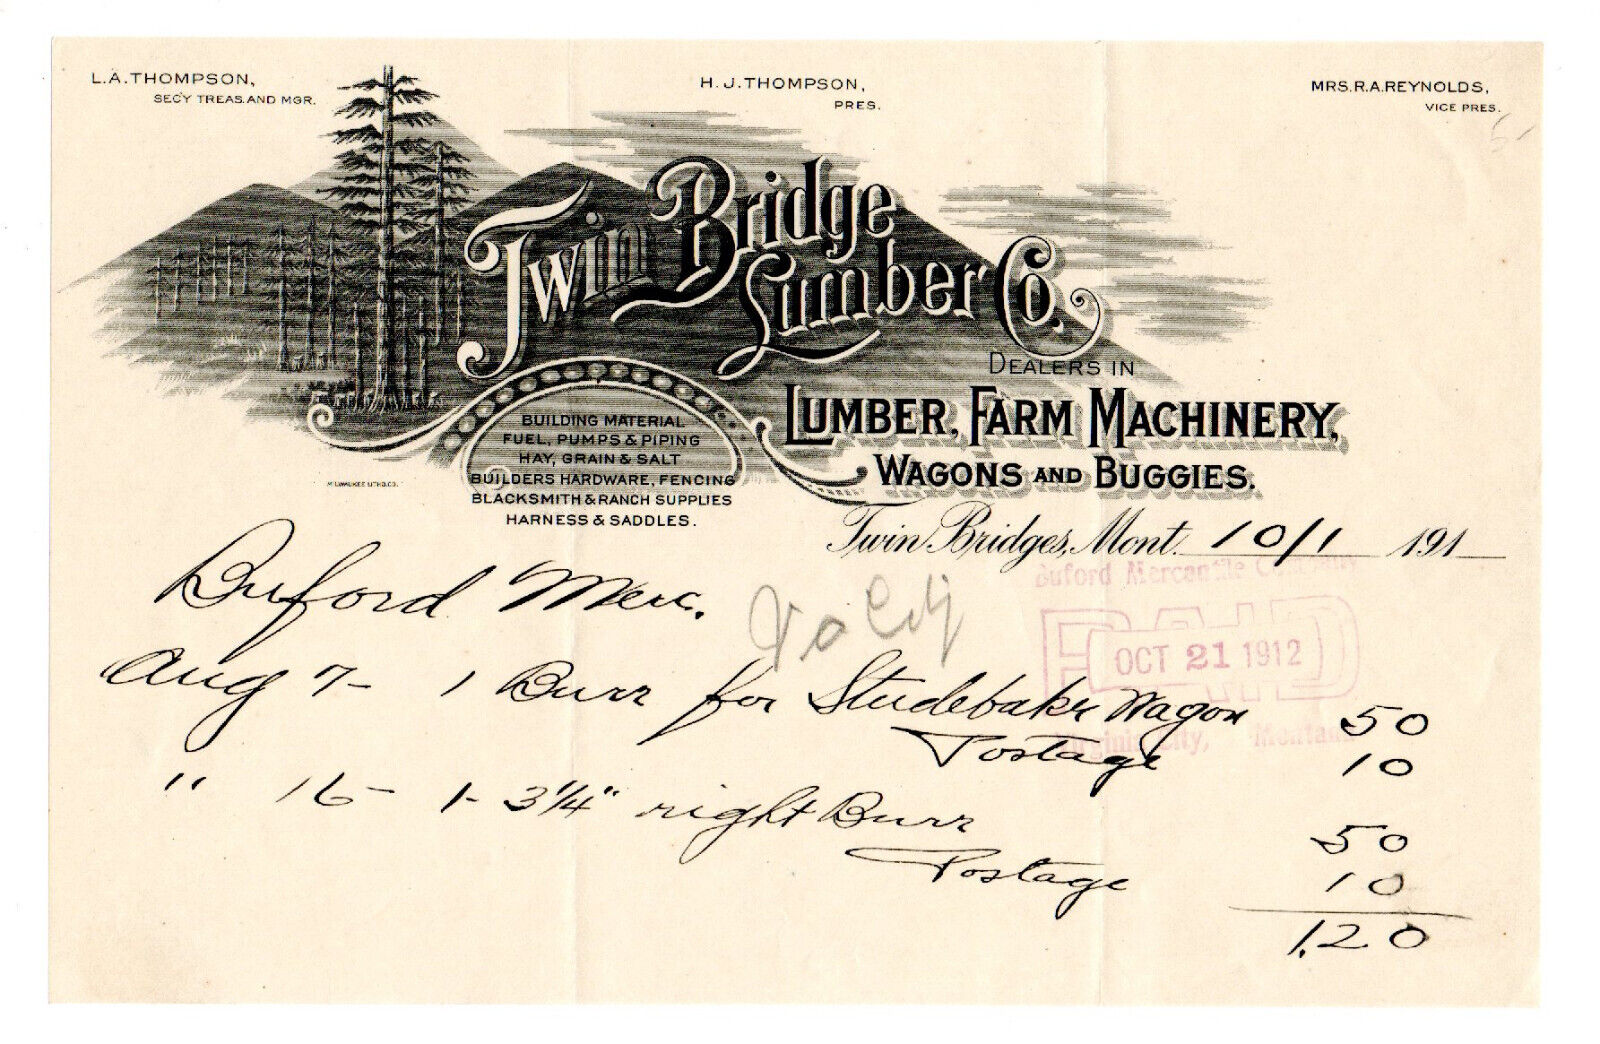 L.A. THOMPSON,
SEC'Y TREAS. AND MGR.
H. J. THOMPSON,
PRES.
MRS. R.A. REYNOLDS,
VICE PRES.
5-
Twin Bridge
Lumber Co.
DEALERS IN
LUMBER, FARM MACHINERY,
WAGONS AND BUGGIES.
BUILDING MATERIAL
FUEL, PUMPS & PIPING
HAY, GRAIN & SALT
BUILDERS HARDWARE, FENCING
BLACKSMITH & RANCH SUPPLIES
HARNESS & SADDLES.
MILWAUKEE LITHO. CO.
Twin Bridges, Mont. 10/1 191
Buford Mercantile Company
PAID
OCT 21 1912
Virginia City, Montana
Buford Merc.
Aug 7- 1 Burr for Studebaker Wagon 50
Postage 10
" 16- 1- 3 1/4" right Burr 50
Postage 10
1.20